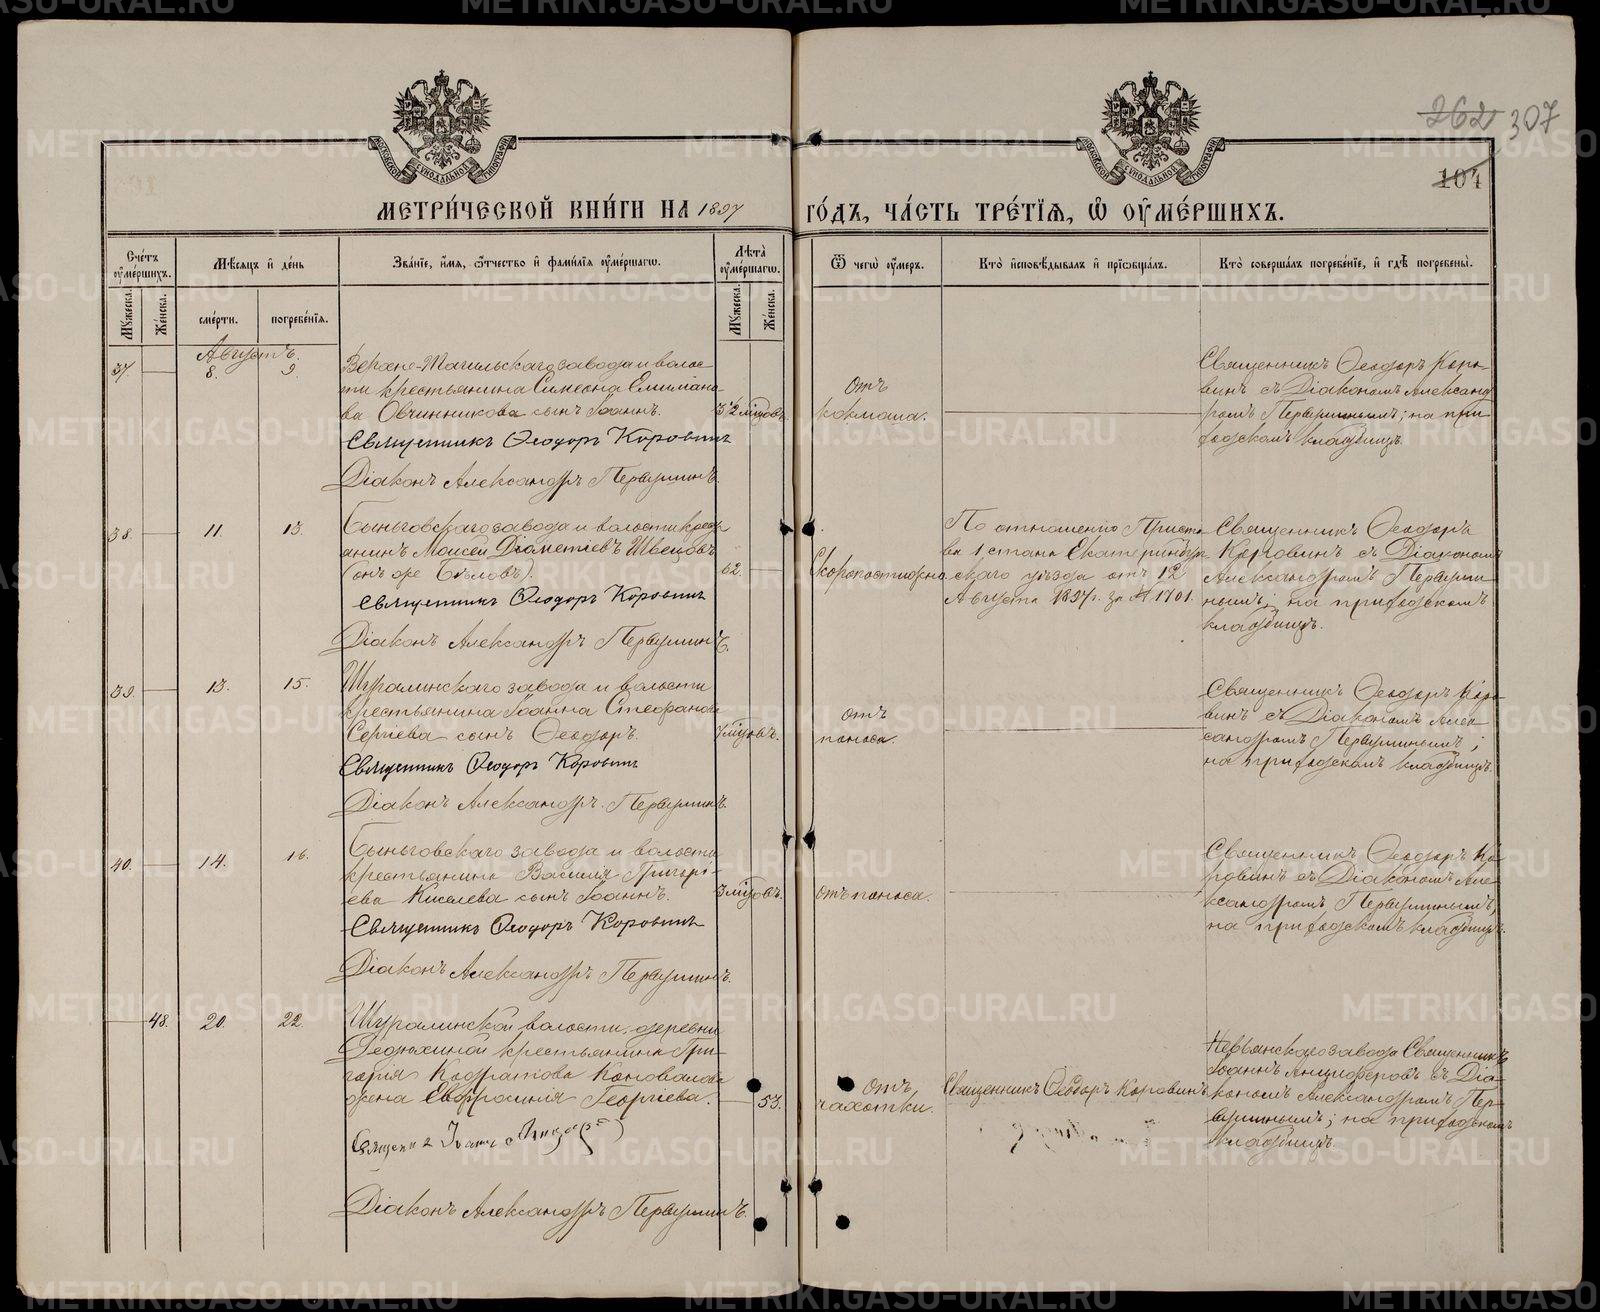 262 307
104
МЕТРИ́ЧЕСКОЙ КНИ́ГИ НА 1897 ГО́ДЪ, ЧА́СТЬ ТРЕ́ТІЯ, Ѿ ОУМЕ́РШИХЪ.
Сче́тъ оуме́ршихъ.
Му́жеска.
Же́нска.
Мѣ́сяцъ и де́нь
сме́рти.
погребе́нія.
Зва́ніе, и́мя, ѻ́тчество и фами́лія оуме́ршагѡ.
Лѣ́та оуме́ршагѡ.
Му́жеска.
Же́нска.
Ѿ чегѡ̀ оу́меръ.
Кто̀ исповѣ́дывалъ и приѡбща́лъ.
Кто̀ соверша́лъ погребе́ніе, и гдѣ̀ погребены̀.
Августъ.
37.
8.
9.
Верхне-Тагильскаго завода и волос-
ти крестьянина Симеона
Овчинникова сынъ Іоаннъ.
Священникъ Ѳеодоръ Коровинъ
Діаконъ Александръ Первушинъ.
3½ мѣсяцъ.
отъ
кокмоша.
Священникъ Ѳеодоръ Коро-
винъ съ Діакономъ Александ
ромъ Первушинымъ; на при-
ходскомъ кладбищѣ.
38.
11.
13.
Быньговскаго завода и волости крест
янинъ Моисей Діаметіевъ Швецовъ
(онъ же Бѣловъ).
Священникъ Ѳеодоръ Коровинъ
Діаконъ Александръ Первушинъ.
62.
Скоропостижно
По отношенію Приста
ва 1 стана Екатеринбур
скаго уѣзда отъ 12
Августа 1897 г. за № 1701.
Священникъ Ѳеодоръ
Коровинъ съ Діакономъ
Александромъ Первуши-
нымъ; на приходскомъ
кладбищѣ.
39.
13.
15.
Шуралинскаго завода и волости
крестьянина Іоанна Стефанова
Сергіева сынъ Ѳеодоръ.
Священникъ Ѳеодоръ Коровинъ
Діаконъ Александръ Первушинъ.
отъ
поноса.
Священникъ Ѳеодоръ Коро-
винъ съ Діакономъ Алек
сандромъ Первушинымъ;
на приходскомъ кладбищѣ.
40.
14.
16.
Быньговскаго завода и волости
крестьянина Василія Григорі-
ева Киселева сынъ Іоаннъ.
Священникъ Ѳеодоръ Коровинъ
Діаконъ Александръ Первушинъ.
3 мѣсяцъ.
отъ поноса.
Священникъ Ѳеодоръ Ко-
ровинъ съ Діакономъ Але-
ксандромъ Первушинымъ;
на приходскомъ кладбищѣ.
48.
20.
22.
Шуралинской волости, деревни
Ѳедюхиной крестьянина Гри-
горія Кодратова Коновалова
жена Евфросинія Георгіева.
Іоаннъ Анциферовъ
Діаконъ Александръ Первушинъ.
53.
отъ
чахотки.
Священникъ Ѳеодоръ Коровинъ
Невьянскаго завода Священникъ
Іоаннъ Анциферовъ съ Діа-
кономъ Александромъ Пер-
вушинымъ; на приходскомъ
кладбищѣ.
METRIKI.GASO-URAL.RU